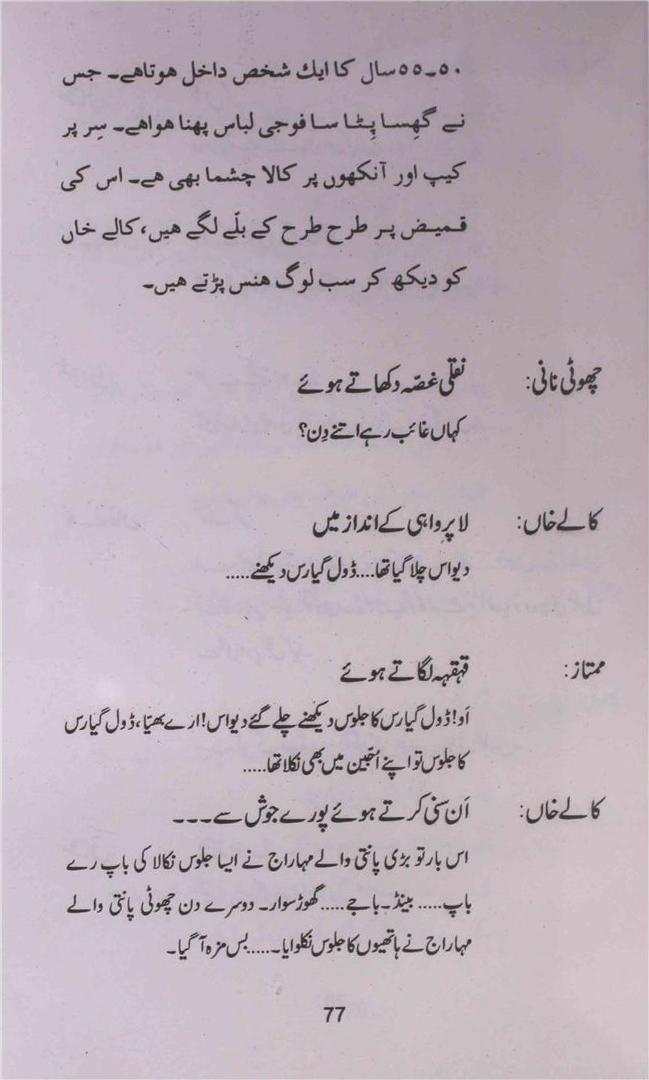 ۵۰۔۵۵ سال کا ایك شخص داخل ہوتاہے۔ جس
نے گھِسا پِٹا سا فوجی لباس پھنا ہواہے۔ سِر پر
کیپ اور آنکھوں پر کالا چشما بھی ہے۔ اس کی
قمیض پر طرح طرح کے بلّے لگے ہیں، کالے خاں
کو دیکھ کر سب لوگ ہنس پڑتے ہیں۔
چھوٹی نانی: نقلی غصّہ دکھاتے ہوئے
کہاں غائب رہے اتنے دِن؟
کالے خاں: لا پرواہی کے انداز میں
دیواس چلا گیا تھا.... ڈول گیارس دیکھنے.....
ممتاز: قہقہہ لگاتے ہوئے
اَو! ڈول گیارس کا جلوس دیکھنے چلے گئے دیواس! ارے بھیّا، ڈول گیارس
کا جلوس تو اپنے اُجّین میں بھی نکلا تھا.....
کالے خاں: اَن سنی کرتے ہوئے پورے جوش سے۔۔۔
اس بار تو بڑی پانتی والے مہاراج نے ایسا جلوس نکالا کی باپ رے
باپ..... بینڈ۔ باجے..... گھوڑ سوار۔ دوسرے دن چھوٹی پانتی والے
مہاراج نے ہاتھیوں کا جلوس نکلوایا۔..... بس مزہ آ گیا۔
77